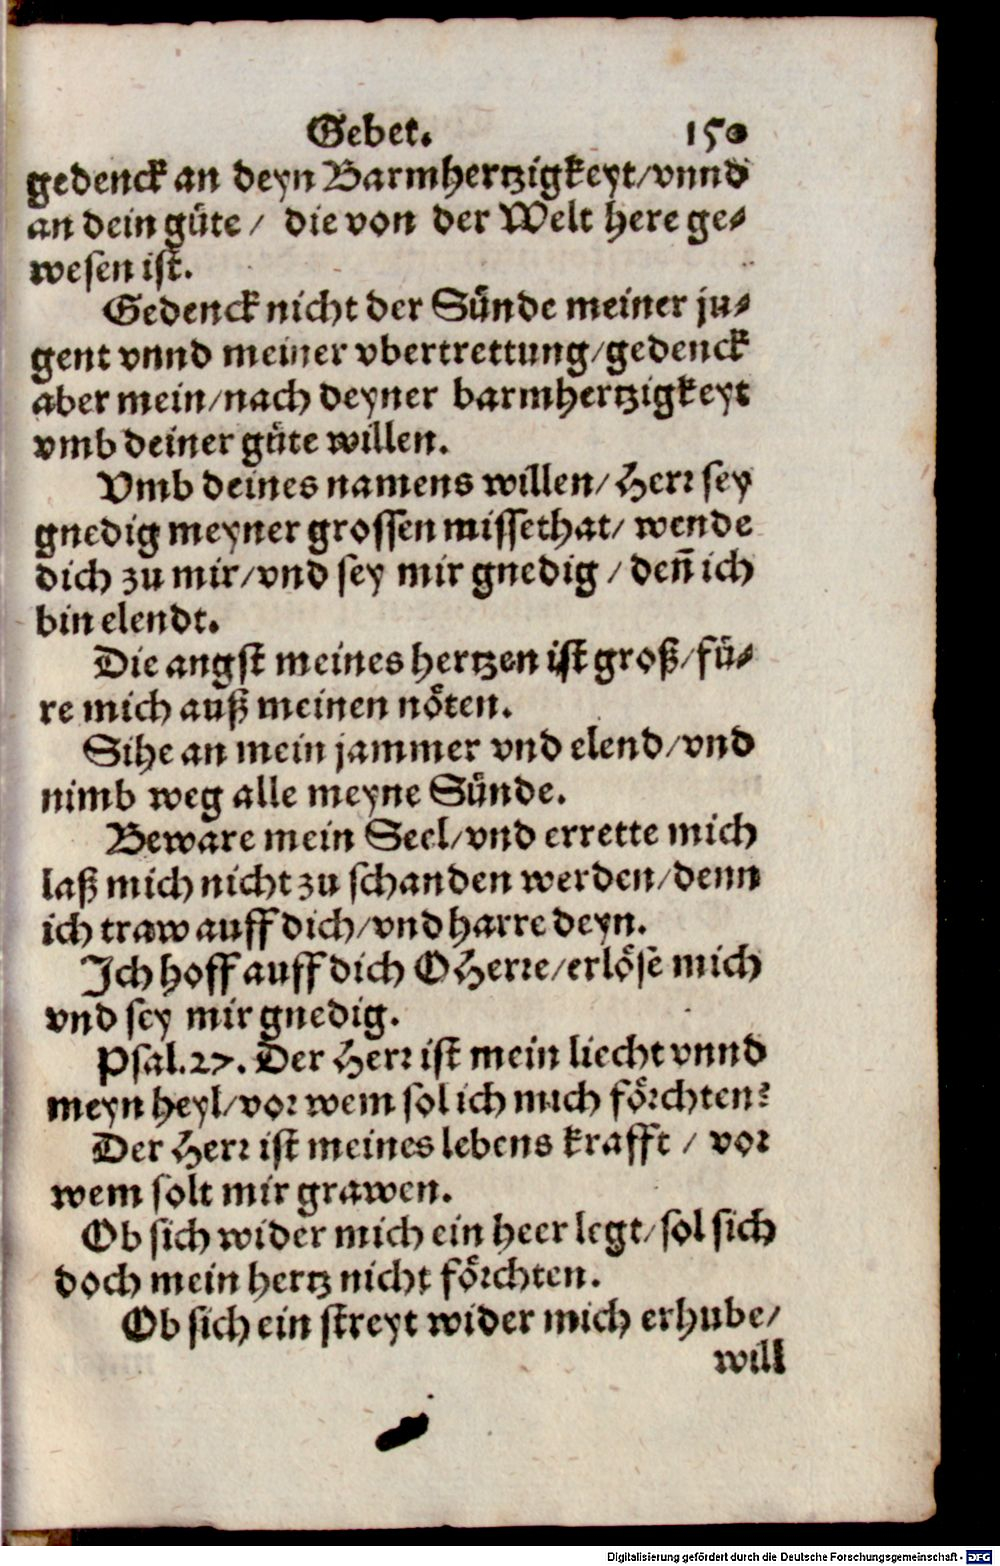 Gebet. 150
gedenck an deyn Barmhertzigkeyt/vnnd
an dein guͤte / die von der Welt here ge⸗
wesen ist.
Gedenck nicht der Suͤnde meiner ju⸗
gent vnnd meiner vbertrettung/gedenck
aber mein/nach deyner barmhertzigkeyt
vmb deiner guͤte willen.
Vmb deines namens willen/Herr sey
gnedig meyner grossen missethat/ wende
dich zu mir/vnd sey mir gnedig / deñ ich
bin elendt.
Die angst meines hertzen ist groß/fuͤ⸗
re mich auß meinen noͤten.
Sihe an mein jammer vnd elend/vnd
nimb weg alle meyne Suͤnde.
Beware mein Seel/vnd errette mich
laß mich nicht zu schanden werden/denn
ich traw auff dich/vnd harre deyn.
Ich hoff auff dich O Herre/erloͤse mich
vnd sey mir gnedig.
Psal.27. Der Herr ist mein liecht vnnd
meyn heyl/vor wem sol ich mich foͤrchten?
Der Herr ist meines lebens krafft / vor
wem solt mir grawen.
Ob sich wider mich ein heer legt/sol sich
doch mein hertz nicht foͤrchten.
Ob sich ein streyt wider mich erhube/
will
Digitalisierung gefördert durch die Deutsche Forschungsgemeinschaft - DFG